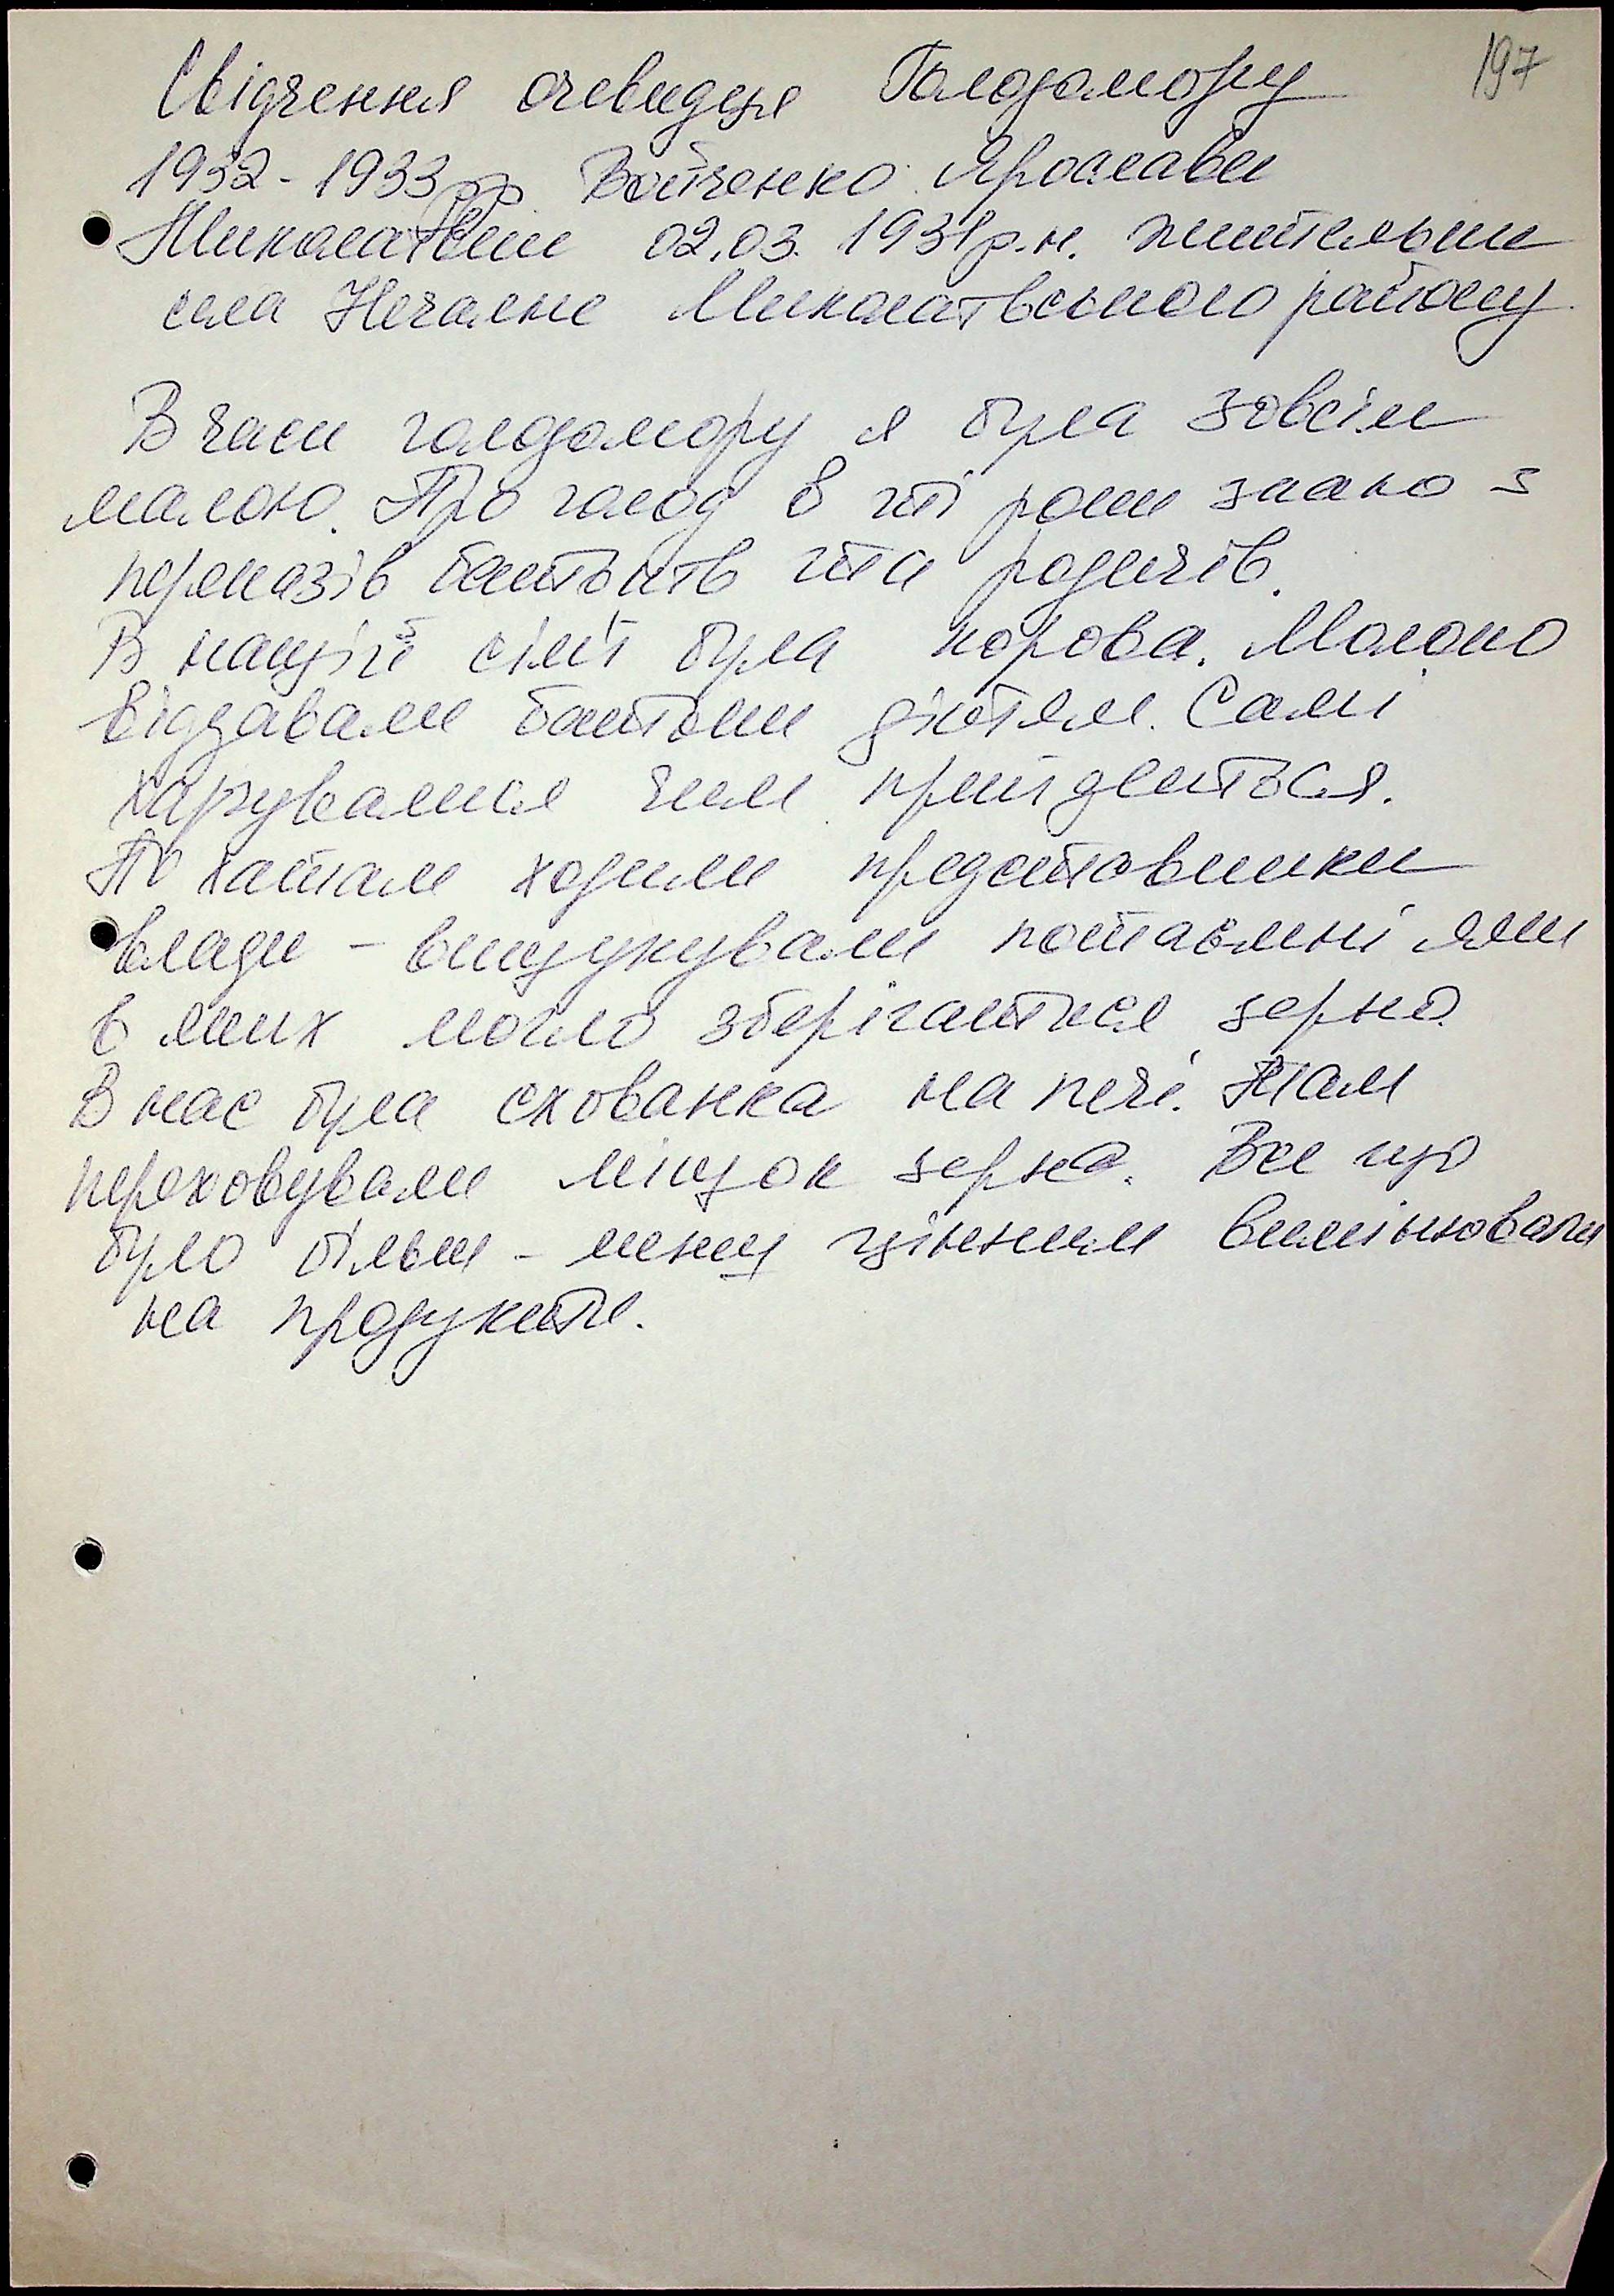 197
Свідчення очевидця Голодомору
1932-1933рр. Войченко Ярослави
Миколаївни 02.03. 1931р.н. жительки
села Нечаяне Миколаївського району
В часи голодомору я була зовсім
малою. Про голод в ті роки знаю з
переказів батьків та родичів.
В нашій сім'ї була корова. Молоко
віддавали батьки дітям. Самі
харчувалися чим прийдеться.
По хатам ходили представники
влади - вишукували потаємні ями
в яких могло зберігатися зерно.
В нас була схованка на печі. Там
переховували мішок зерна. Все що
було більш - менш цінним вимінювали
на продукти.